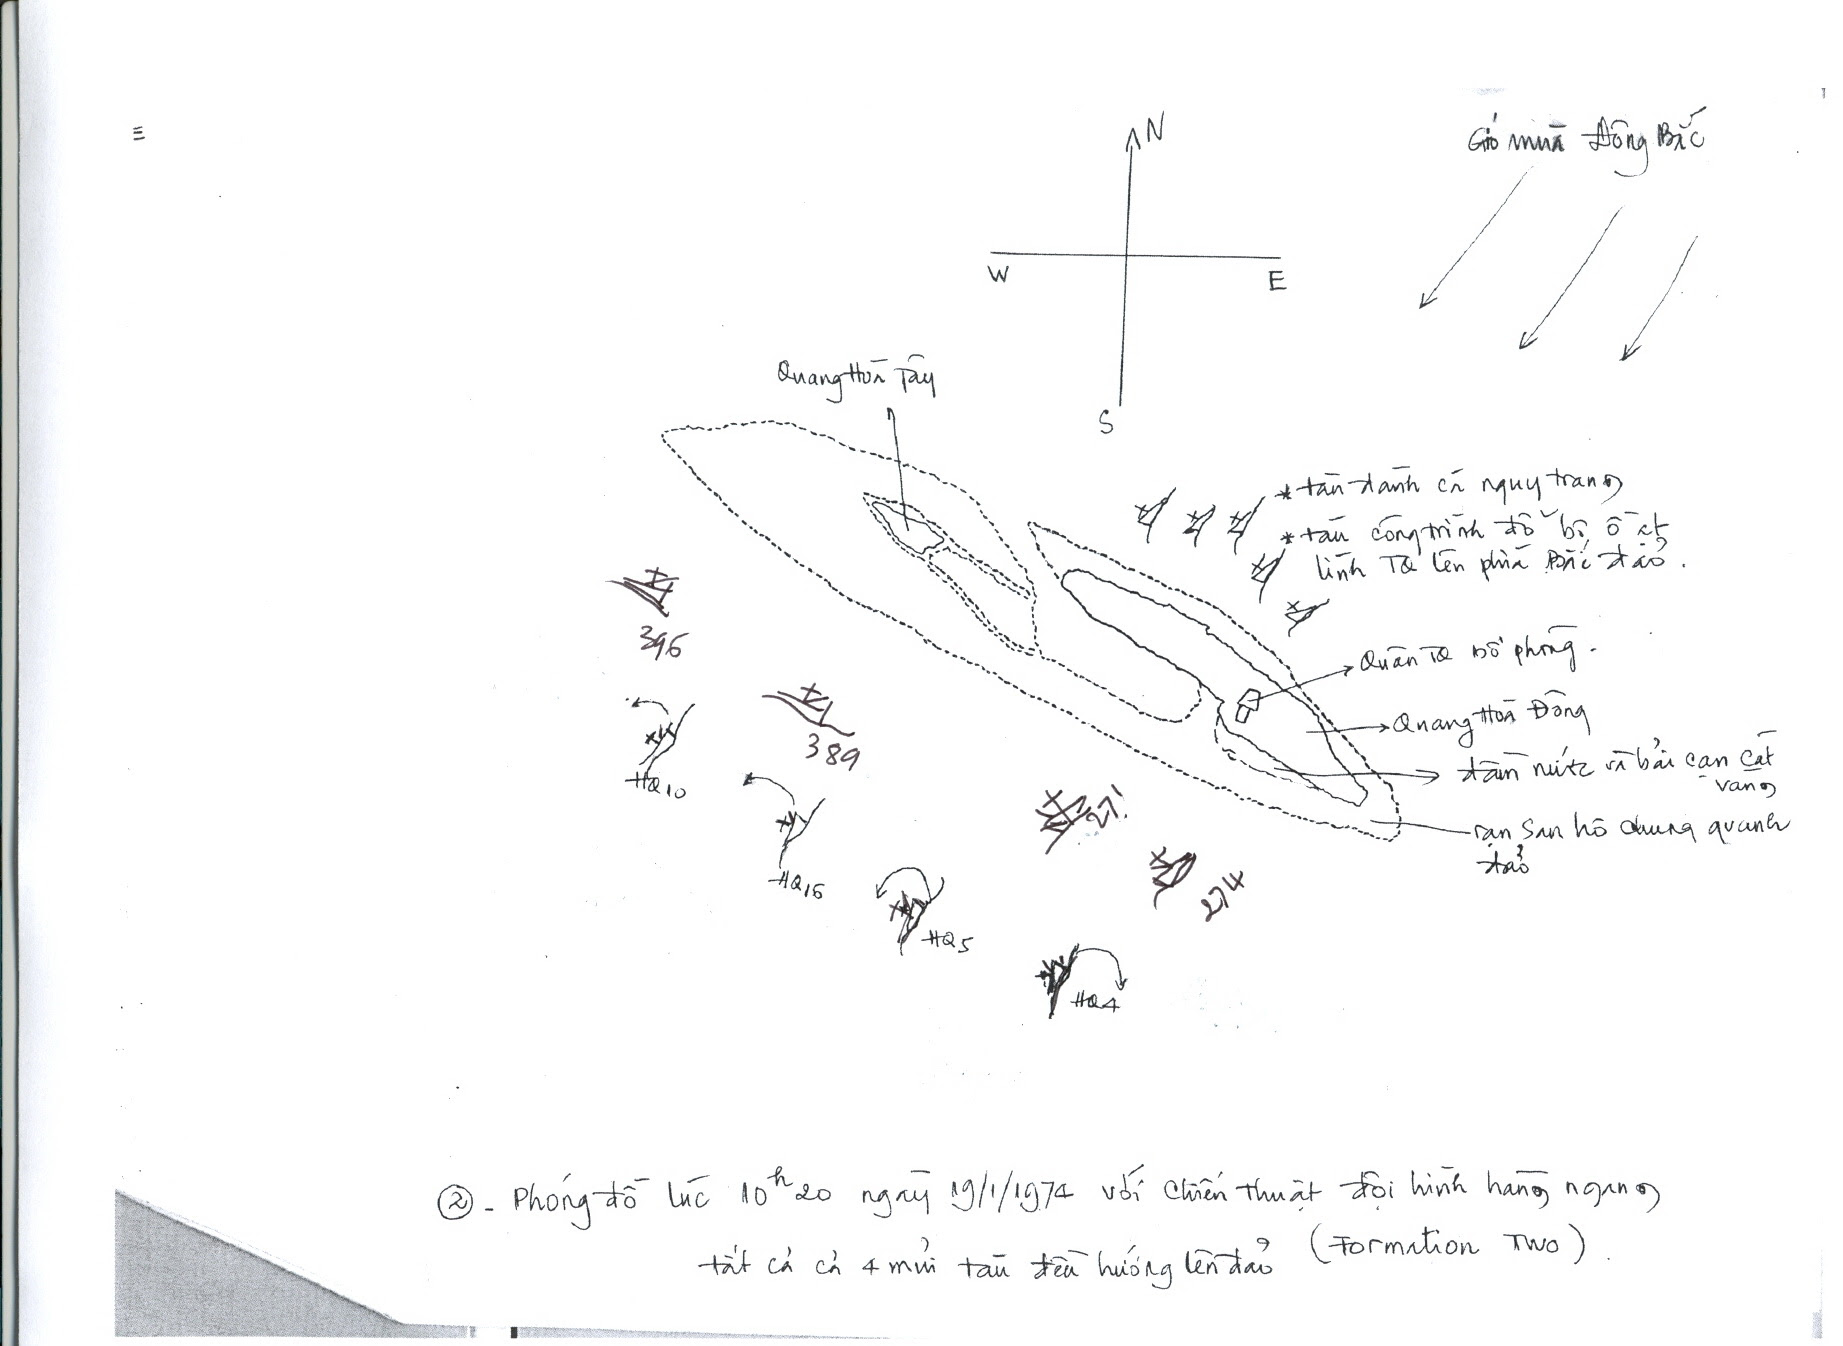 N
Gió mùa Đông Bắc
W
E
S
Quang Hòa Tây
* tàu đánh cá ngụy trang
* tàu công trình đổ bộ ồ ạt
lính TQ lên phía Bắc đảo.
396
Quân TQ bố phòng.
Quang Hòa Đông
389
HQ10
đầm nước và bãi cạn cát
vàng
271
rạn san hô chung quanh
đảo
HQ16
274
HQ5
HQ4
② - Phóng đồ lúc 10h20 ngày 19/1/1974 với chiến thuật đội hình hàng ngang
tất cả cả 4 mũi tàu đều hướng lên đảo (Formation Two).